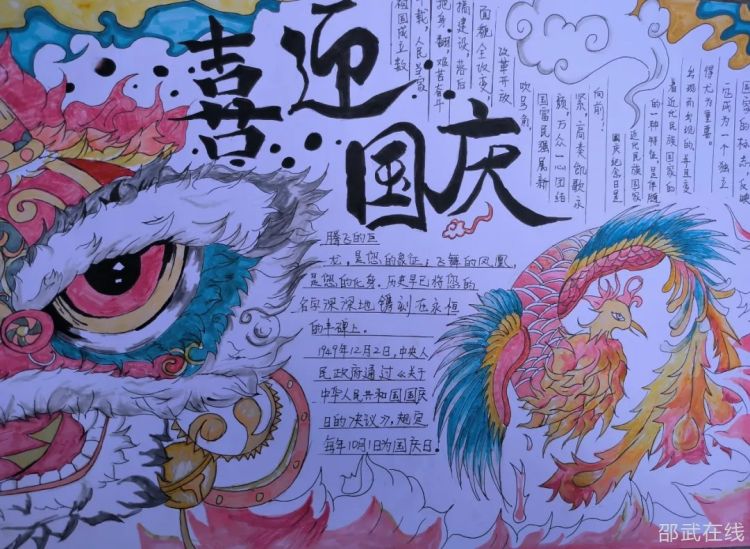 喜迎
国庆
祖国成立数
十载，人民当家
把身翻，艰苦奋斗
搞建设，落后
面貌全改变，
改革开放
吹号角，
国富民强展新
颜，万众一心团结
紧，高奏凯歌永
向前！
国庆纪念日是
近代民族国家
的一种特征，是伴随
着近代民族国家的
出现而出现的，并且变
得尤为重要。
它成为一个独立
国家的标志，反映
腾飞的巨
龙，是您的象征；飞舞的凤凰，
是您的化身。历史早已将您的
名字深深地镌刻在永恒
的丰碑上。
1949年12月2日，中央人
民政府通过《关于
中华人民共和国国庆
日的决议》，规定
每年10月1日为国庆日。
邵武在线